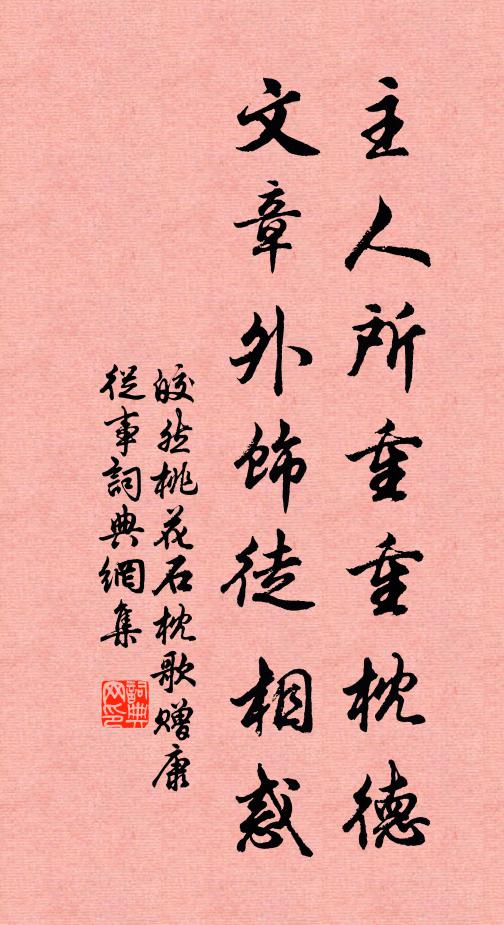 主人所重重枕德
文章外飾徒相惑
皎然桃花石枕歌赠康
從事詞典網集
詞典
网印